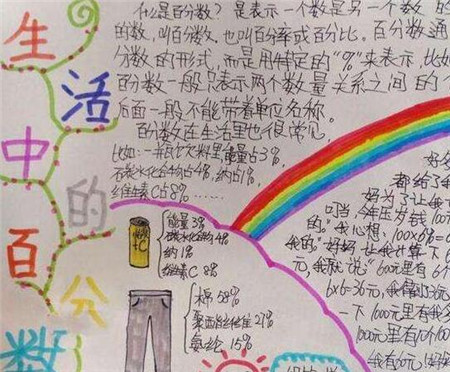 生活中的百分数
什么是百分数？是表示一个数是另一个数的
的数，叫百分数，也叫百分率或百分比。百分数通
分数的形式，而是用特定的"%"来表示，比如
百分数一般只表示两个数量关系之间的
后面一般不能带着单位名称。
百分数在生活里也很常见，
比如：一瓶饮料里，能量占3%，
碳水化合物占4%，钠占1%，
维生素C占8%……
能量 3%
碳水化合物 4%
钠 1%
维生素C 8%
+C
棉 58%
聚酯纤维 27%
氨纶 15%
都给了
好为了让我
叮当，今年压岁钱100
的。"我心想，100×6%=
我的。""好好，让我计算一下
元，我就说："60元里有6个
6×6=36元，我得到36元
一下100元里有
1000元里有10个100
我有60元！